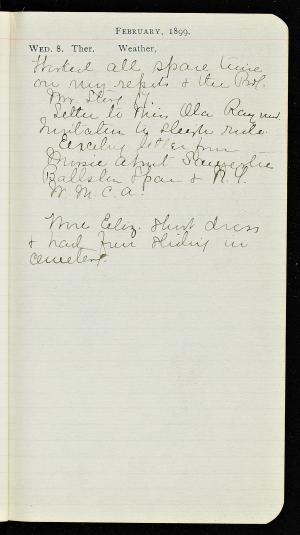 FEBRUARY, 1899.
WED. 8. Ther. Weather,
Worked all spare time
on my repts & the Prof.
Letter to Miss Ola Raymond
Invitation to sleigh ride.
letter from
Music about
Ballston Spa & N. Y.
W. M. C. A.
Wore Eliz. short dress
& had fun sliding in
cemetery.